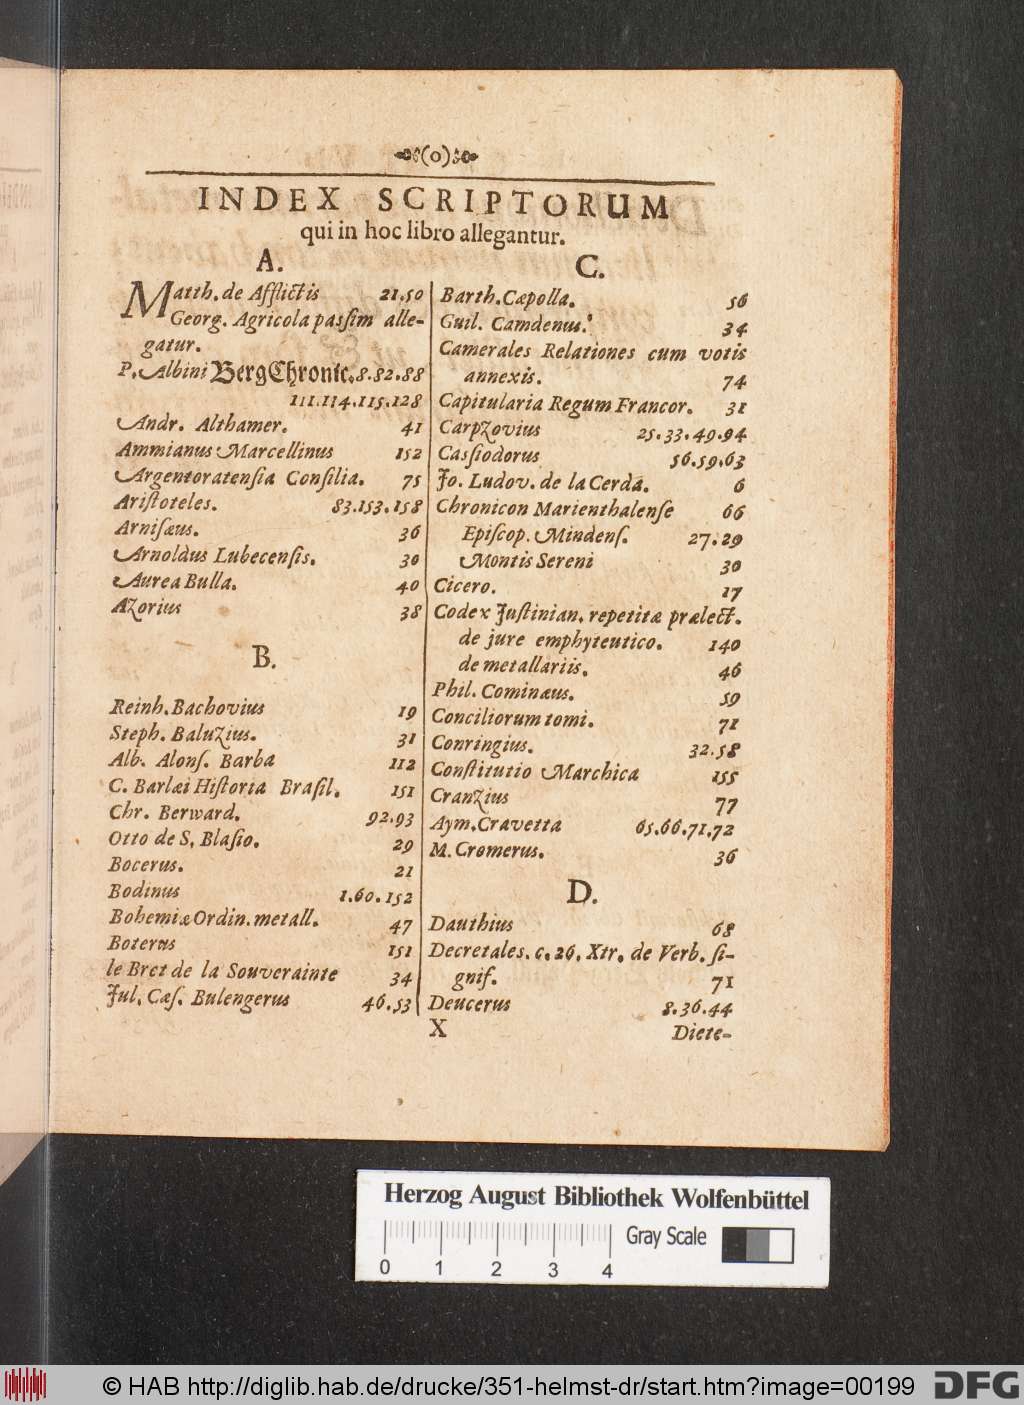 (o)
INDEX SCRIPTORUM
qui in hoc libro allegantur.
A.
Matth. de Afflictis 21.50
Georg. Agricola paſſim alle-
gatur.
P. Albini BergChronic. 8.82.88
111.114.115.128
Andr. Althamer. 41
Ammianus Marcellinus 152
Argentoratenſia Conſilia. 75
Ariſtoteles. 83.153.158
Arniſæus. 36
Arnoldus Lubecenſis. 30
Aurea Bulla. 40
Azorius 38
B.
Reinh. Bachovius 19
Steph. Baluzius. 31
Alb. Alonſ. Barba 112
C. Barlæi Hiſtoria Braſil. 151
Chr. Berward. 92.93
Otto de S. Blaſio. 29
Bocerus. 21
Bodinus 1.60.152
Bohemiæ Ordin. metall. 47
Boterus 151
le Bret de la Souverainte 34
Jul. Cæſ. Bulengerus 46.53
C.
Barth. Cæpolla. 56
Guil. Camdenus. 34
Camerales Relationes cum votis
annexis. 74
Capitularia Regum Francor. 31
Carpzovius 25.33.49.94
Caſſiodorus 56.59.63
Jo. Ludov. de la Cerdá. 6
Chronicon Marienthalenſe 66
Epiſcop. Mindenſ. 27.29
Montis Sereni 30
Cicero. 17
Codex Juſtinian. repetitæ prælect.
de jure emphyteutico. 140
de metallariis. 46
Phil. Cominæus. 59
Conciliorum tomi. 71
Conringius. 32.58
Conſtitutio Marchica 155
Cranzius 77
Aym. Cravetta 65.66.71.72
M. Cromerus. 36
D.
Dauthius 68
Decretales. c. 26. Xtr. de Verb. ſi-
gnif. 71
Deucerus 8.36.44
X Diete-
Herzog August Bibliothek Wolfenbüttel
Gray Scale
0 1 2 3 4
© HAB http://diglib.hab.de/drucke/351-helmst-dr/start.htm?image=00199
DFG